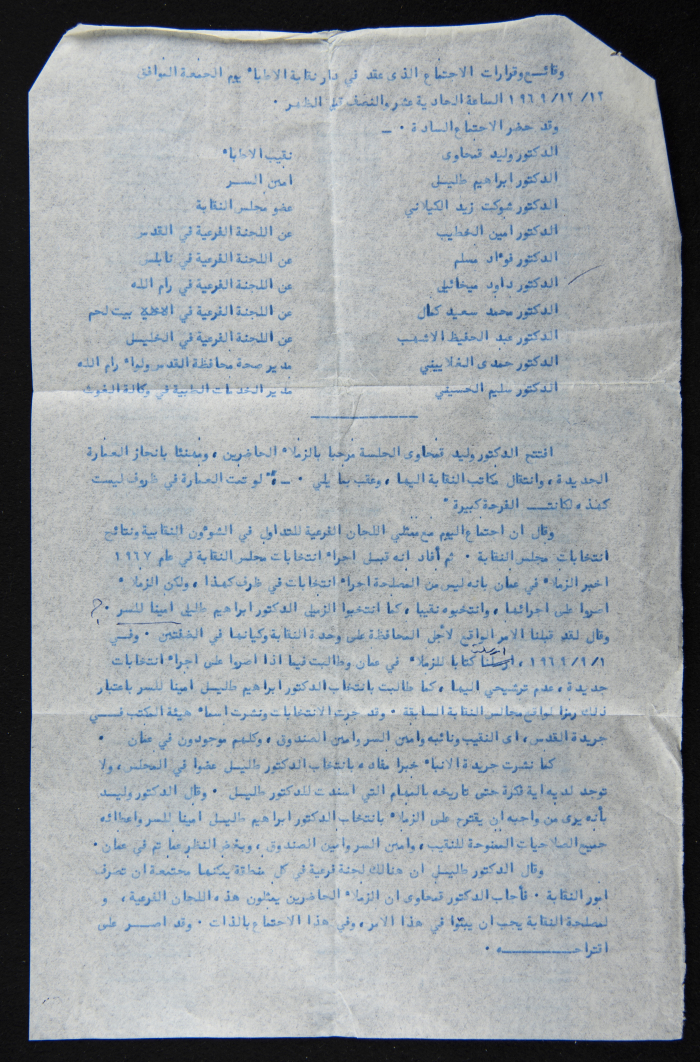 وقائع وقرارات الاجتماع الذى عقد في دار نقابة الاطباء يوم الجمعة الموافق
١٩٦٩/١٢/١٢ الساعة الحادية عشر والنصف قبل الظهر ٠
وقد حضر الاجتماع السادة ٠ ــ
الدكتور وليد قمحاوى نقيب الاطباء
الدكتور ابراهيم طليل امين السر
الدكتور شوكت زيد الكيلاني عضو مجلس النقابة
الدكتور أمين الخطيب عن اللجنة الفرعية في القدس
الدكتور فؤاد مسلم عن اللجنة الفرعية في نابلس
الدكتور داود ميخائيل عن اللجنة الفرعية في رام الله
الدكتور محمد سعيد كمال عن اللجنة الفرعية في بيت لحم
الدكتور عبد الحفيظ الاشهب عن اللجنة الفرعية في الخليل
الدكتور حمدى الغلاييني مدير صحة محافظة القدس ولواء رام الله
الدكتور سليم الحسيني مدير الخدمات الطبية في وكالة الغوث
افتتح الدكتور وليد قمحاوى الجلسة مرحبا بالزملاء الحاضرين ، ومهنئا بانجاز العمارة
الجديدة ، وانتقال مكاتب النقابة اليها ، وعقب بما يلي ٠ ــ " لو تمت العمارة في ظروف ليست
كهذه ، لكانت الفرحة كبيرة "
وقال ان اجتماع اليوم مع ممثلي اللجان الفرعية للتداول في الشؤون النقابية ونتائج
انتخابات مجلس النقابة ٠ ثم أفاد انه قبيل اجراء انتخابات مجلس النقابة في عام ١٩٦٧
اخبر الزملاء في عمان بانه ليس من المصلحة اجراء انتخابات في ظرف كهذا ، ولكن الزملاء
اصروا على اجرائها ، وانتخبوه نقيبا ، كما انتخبوا الزميل الدكتور ابراهيم طليل امينا للسر ٠
وقال لقد قبلنا الامر الواقع لأجل المحافظة على وحدة النقابة وكيانها في الضفتين ٠ وفي
١٩٦٩/٩/١ ، ارسلت كتابا للزملاء في عمان وطالبت فيما اذا اصروا على اجراء انتخابات
جديدة ، عدم ترشيحي اليها ، كما طالبت بانتخاب الدكتور ابراهيم طليل امينا للسر باعتبار
ذلك رمزا لواقع مجالس النقابة السابقة ٠ وقد جرت الانتخابات ونشرت اسماء هيئة المكتب في
جريدة القدس ، اى النقيب ونائبه وامين السر وامين الصندوق ، وكلهم موجودون في عمان ٠
كما نشرت جريدة الانباء خبرا مفاده بانتخاب الدكتور طليل عضوا في المجلس ، ولا
توجد لديه اية فكرة حتى تاريخه بالمهام التي اسندت للدكتور طليل ٠ وقال الدكتور وليد
بأنه يرى من واجبه ان يقترح على الزملاء بانتخاب الدكتور ابراهيم طليل امينا للسر واعطائه
جميع الصلاحيات الممنوحة للنقيب ، وامين السر وامين الصندوق ، وبغض النظر عما تم في عمان ٠
وقال الدكتور طليل ان هنالك لجنة فرعية في كل منطقة يمكنها مجتمعة ان تصرف
امور النقابة ٠ فأجاب الدكتور قمحاوى ان الزملاء الحاضرين يمثلون هذه اللجان الفرعية ، و
لمصلحة النقابة يجب ان يبتوا في هذا الامر ، وفي هذا الاجتماع بالذات ٠ وقد اصر على
اقتراحه ٠